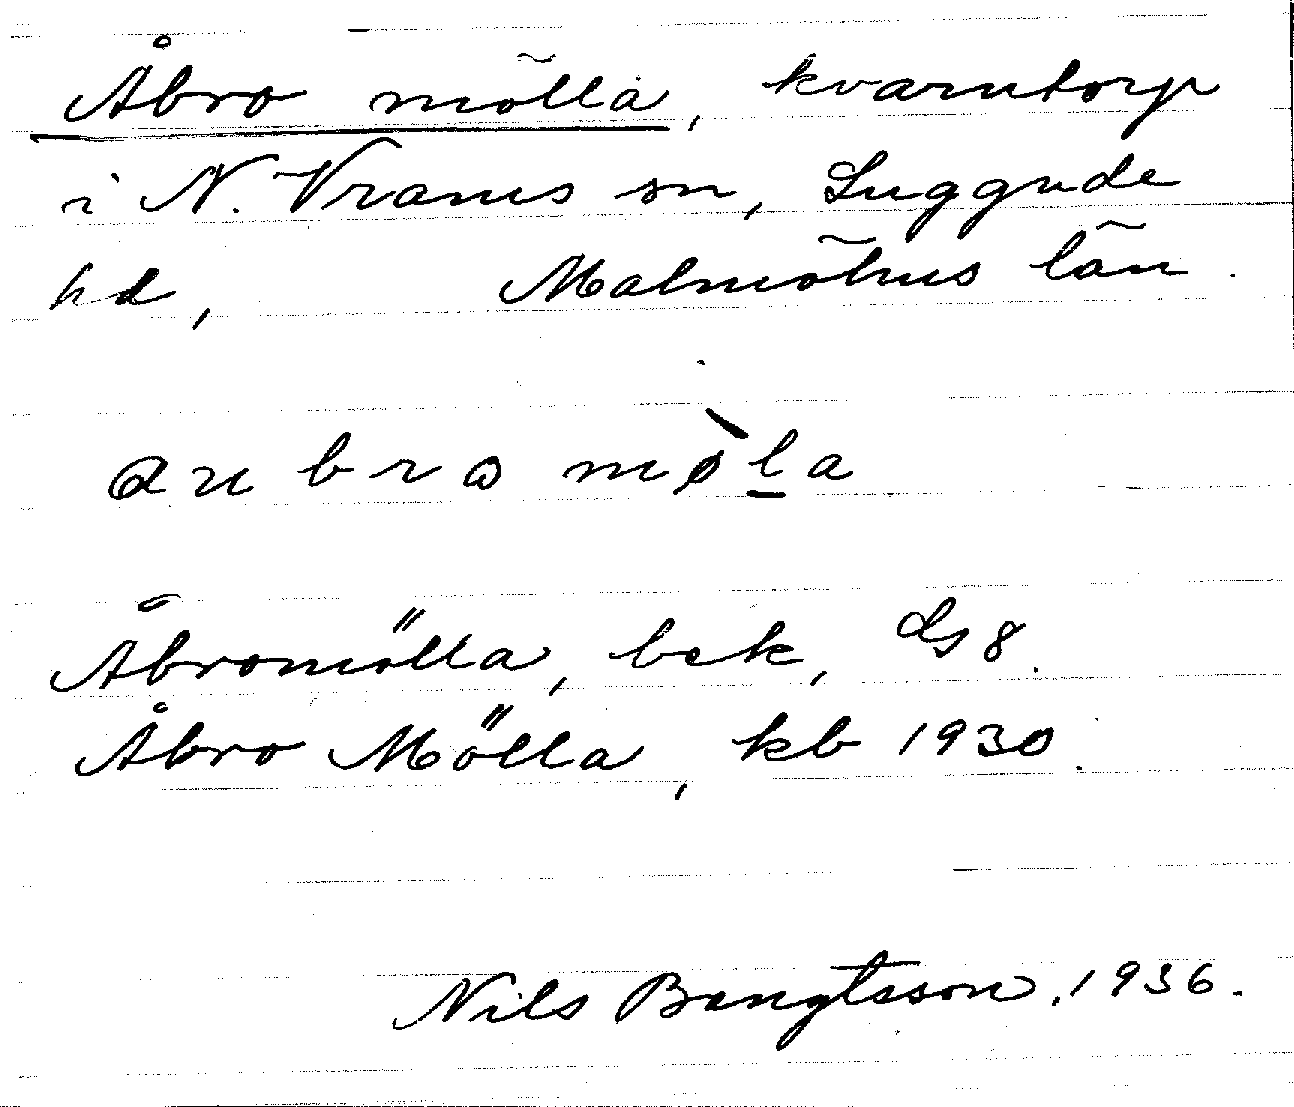 Åbro mölla, kvarntorp
i N. Vrams sn, Luggude
hd, Malmöhus län.
aubro mø̀la
Åbromölla, bek, GS 8.
Åbro Mölla, kb 1930.
Nils Bengtsson, 1936.